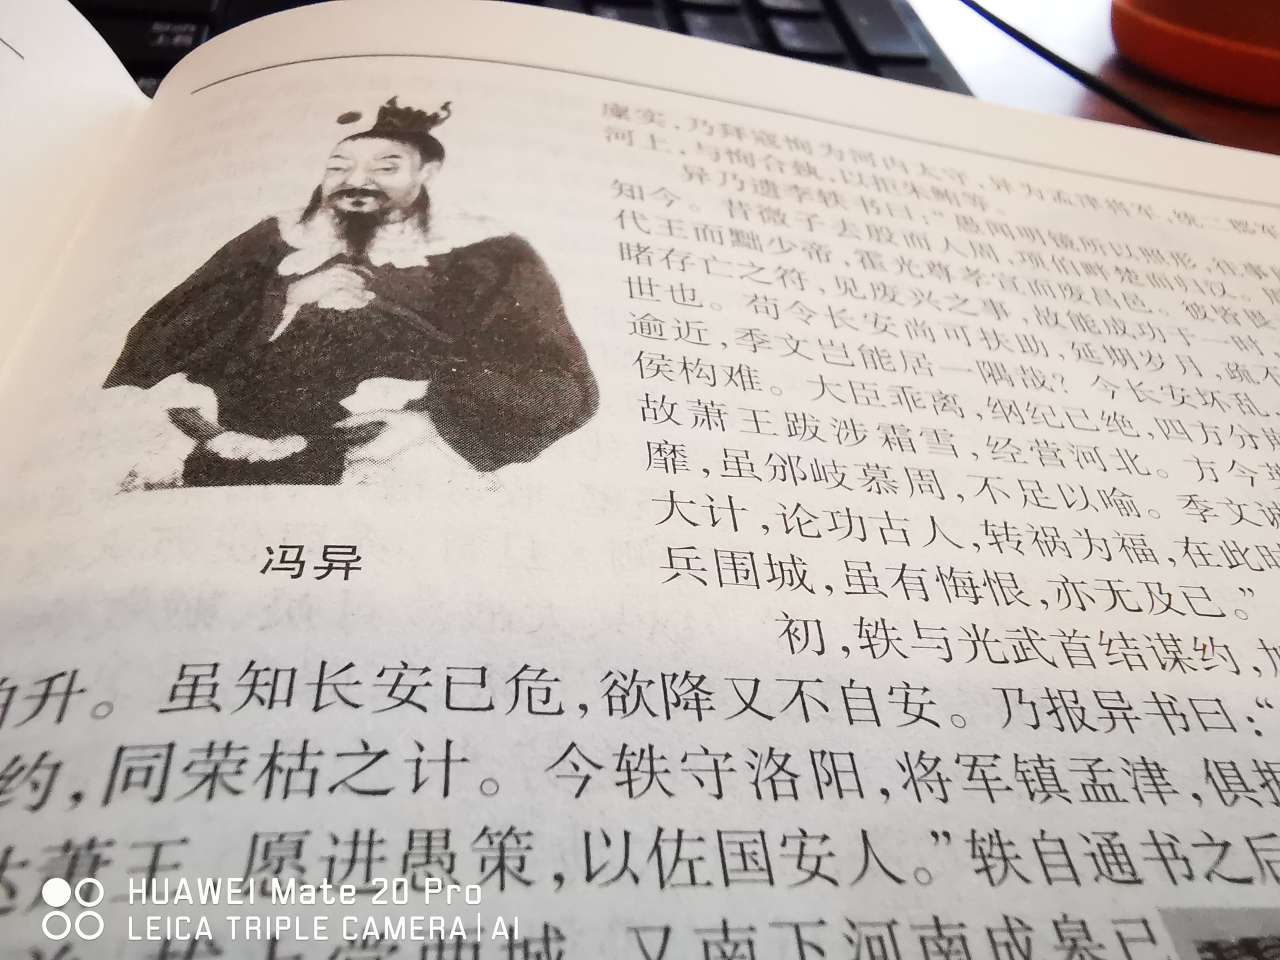 冯异
廪实，乃拜寇恂为河内太守，异为孟津将军，统二郡军
河上，与恂合势，以拒朱鲔等。
异乃遗李轶书曰：“愚闻明镜所以照形，往事
知今。昔微子去殷而入周，项伯畔楚而归汉。
代王而黜少帝，霍光尊孝宣而废昌邑。彼皆畏
睹存亡之符，见废兴之事，故能成功于一时，
世也。苟令长安尚可扶助，延期岁月，疏不
逾近，季文岂能居一隅哉？今长安坏乱，
侯构难。大臣乖离，纲纪已绝，四方分崩
故萧王跋涉霜雪，经营河北。方今英
靡，虽邠岐慕周，不足以喻。季文诚
大计，论功古人，转祸为福，在此时
兵围城，虽有悔恨，亦无及已。”
初，轶与光武首结谋约，加
伯升。虽知长安已危，欲降又不自安。乃报异书曰：“
约，同荣枯之计。今轶守洛阳，将军镇孟津，俱据
达萧王，愿进愚策，以佐国安人。”轶自通书之后
上党两城，又南下河南成皋已
HUAWEI Mate 20 Pro
LEICA TRIPLE CAMERA | AI